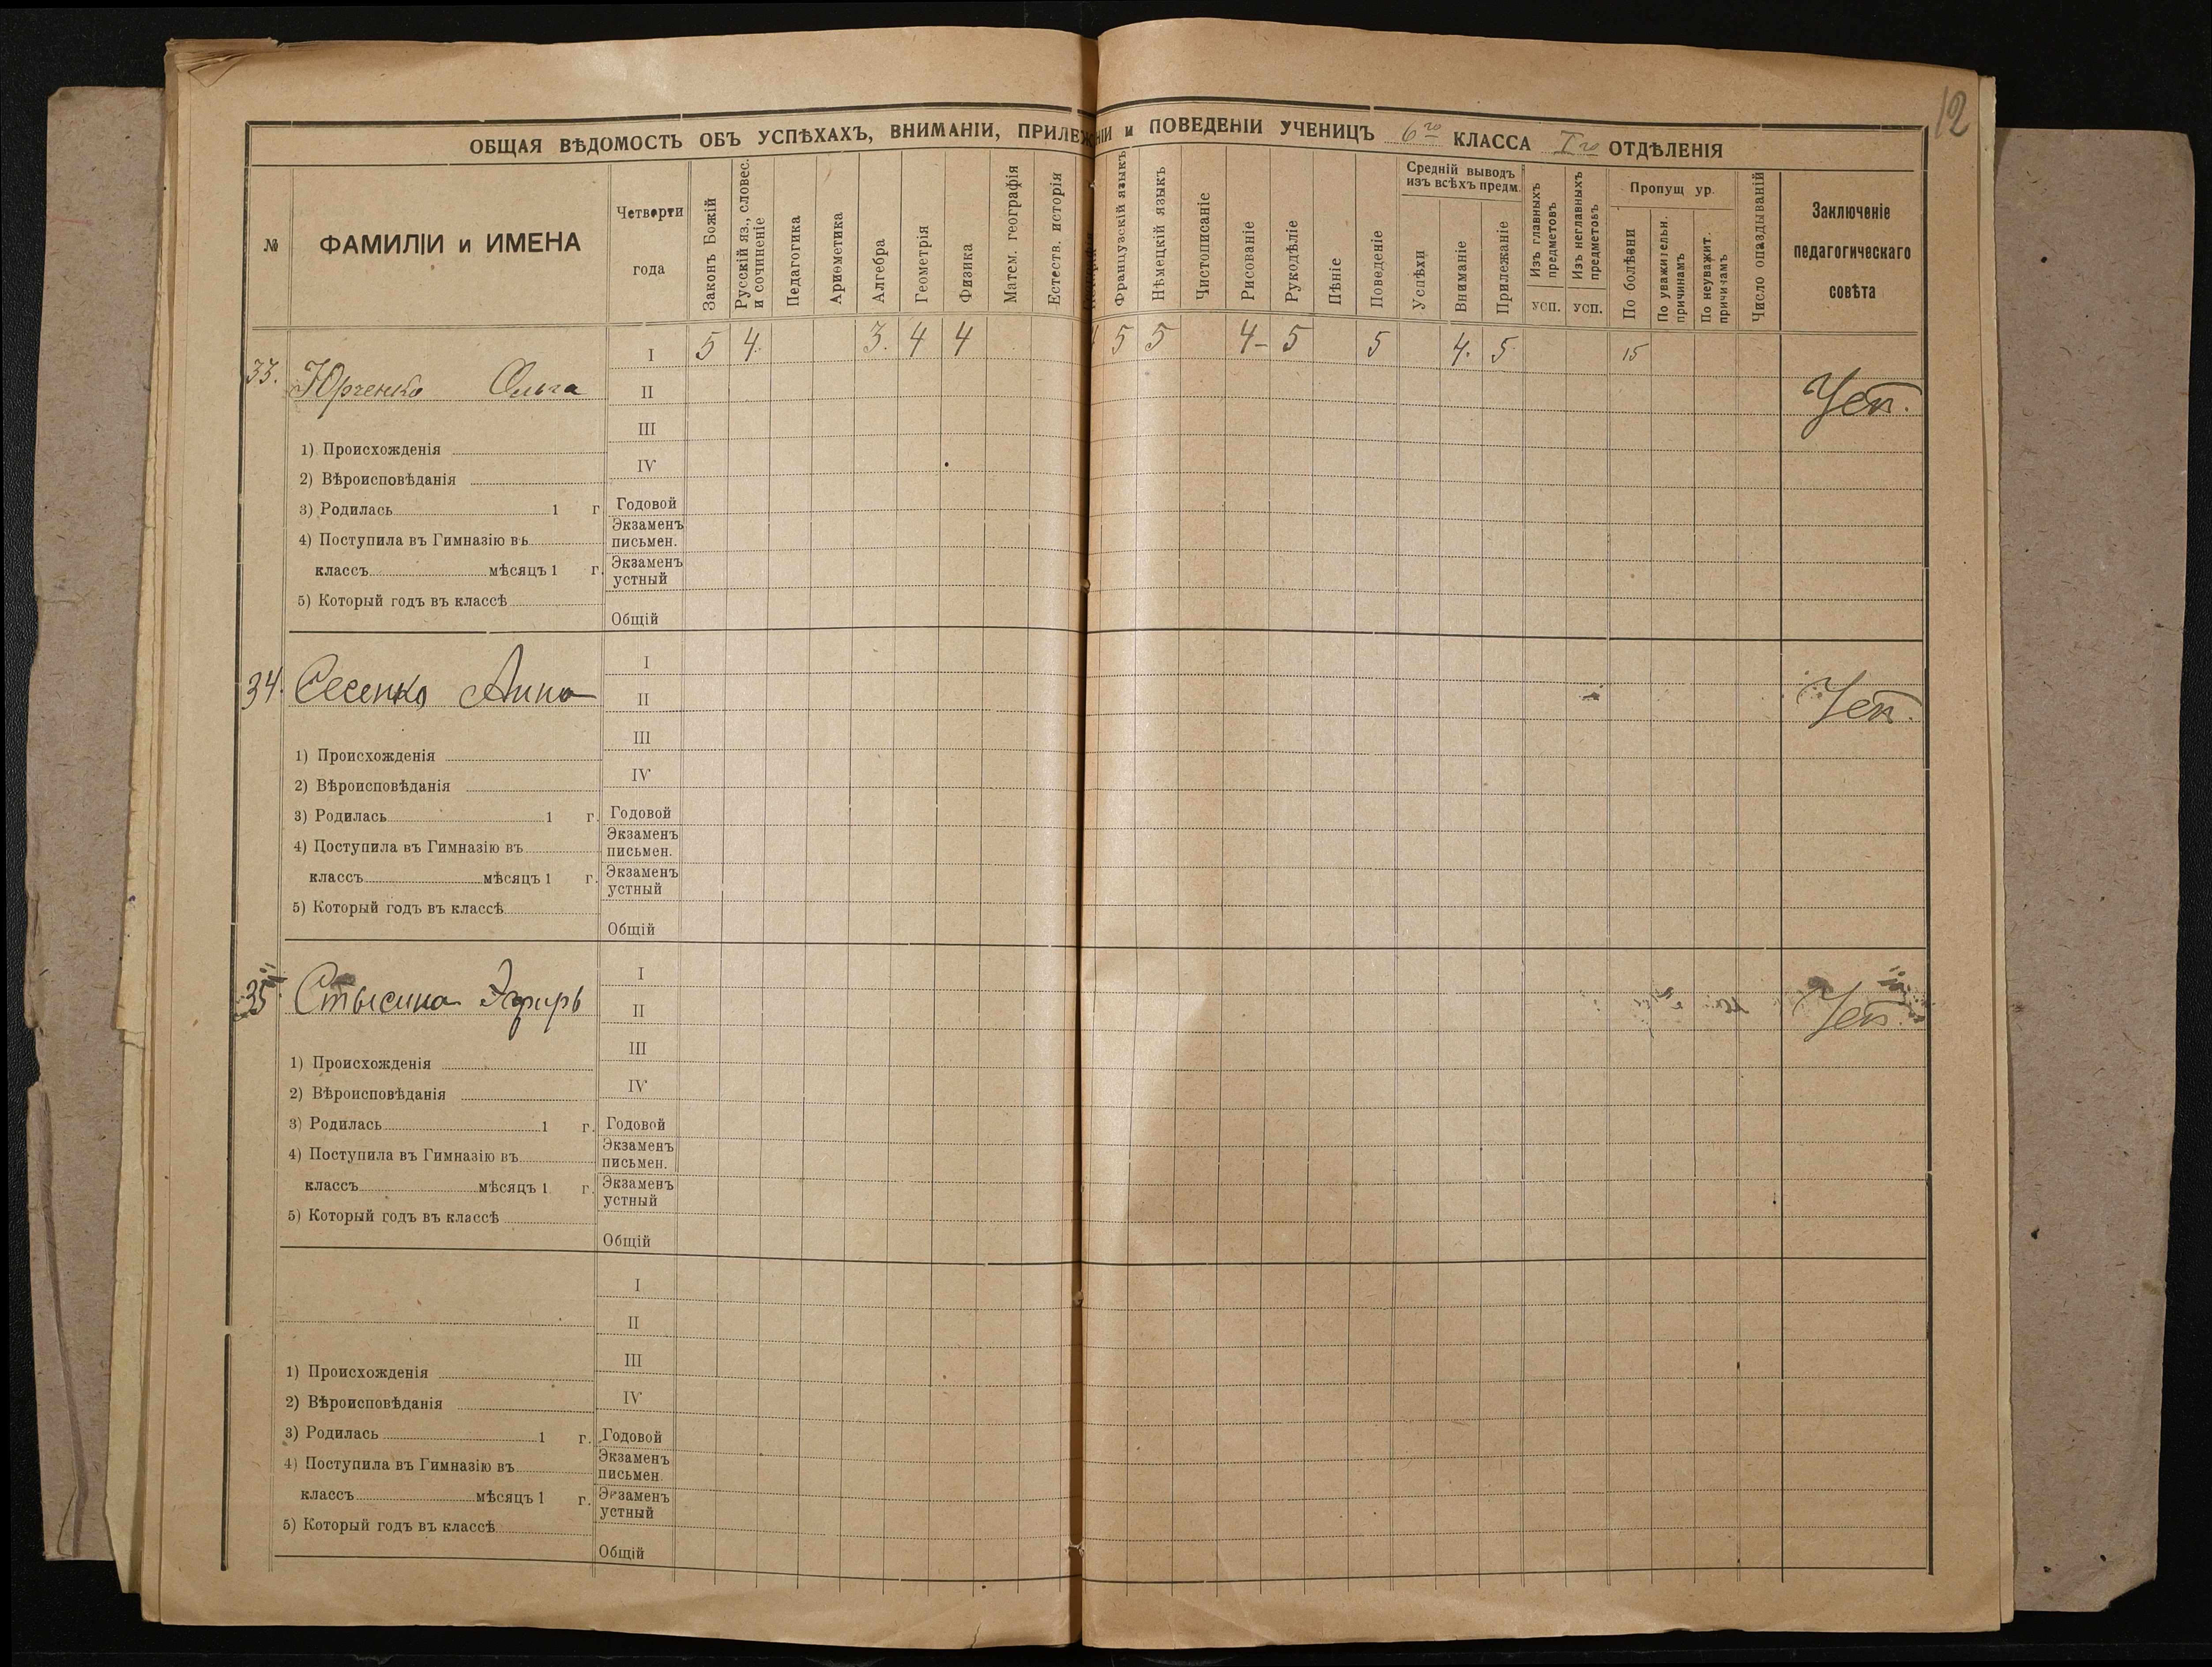 12
ОБЩАЯ ВѢДОМОСТЬ ОБЪ УСПѢХАХЪ, ВНИМАНІИ, ПРИЛЕЖАНІИ и ПОВЕДЕНІИ УЧЕНИЦЪ 6го КЛАССА Iго ОТДѢЛЕНІЯ
№
ФАМИЛІИ и ИМЕНА
Четверти
года
Законъ Божій
Русскій яз., словес.
и сочиненіе
Педагогика
Ариѳметика
Алгебра
Геометрія
Физика
Матем. географія
Естеств. исторія
Французскій языкъ
Нѣмецкій языкъ
Чистописаніе
Рисованіе
Рукодѣліе
Пѣніе
Поведеніе
Средній выводъ
изъ всѣхъ предм.
Успѣхи
Вниманіе
Прилежаніе
Изъ главныхъ
предметовъ
усп.
Изъ неглавныхъ
предметовъ
усп.
Пропущ ур.
По болѣзни
По уважительн.
причинамъ
По неуважит.
причинамъ
Число опаздываній
Заключеніе
педагогическаго
совѣта
33.
Юрченко Ольга
I 5 4. 3. 4 4 5 5 4- 5 5 4. 5 15
II
III
IV
Годовой
Экзаменъ
письмен.
Экзаменъ
устный
Общій
1) Происхожденія
2) Вѣроисповѣданія
3) Родилась 1 г
4) Поступила въ Гимназію въ
классъ мѣсяцъ 1 г.
5) Который годъ въ классѣ
34.
Сесенко Анна
I
II
III
IV
Годовой
Экзаменъ
письмен.
Экзаменъ
устный
Общій
1) Происхожденія
2) Вѣроисповѣданія
3) Родилась 1 г.
4) Поступила въ Гимназію въ
классъ мѣсяцъ 1 г.
5) Который годъ въ классѣ
35.
Стысина Эсфирь
I
II
III
IV
Годовой
Экзаменъ
письмен.
Экзаменъ
устный
Общій
1) Происхожденія
2) Вѣроисповѣданія
3) Родилась 1 г.
4) Поступила въ Гимназію въ
классъ мѣсяцъ 1 г.
5) Который годъ въ классѣ
I
II
III
IV
Годовой
Экзаменъ
письмен.
Экзаменъ
устный
Общій
1) Происхожденія
2) Вѣроисповѣданія
3) Родилась 1 г.
4) Поступила въ Гимназію въ
классъ мѣсяцъ 1 г.
5) Который годъ въ классѣ